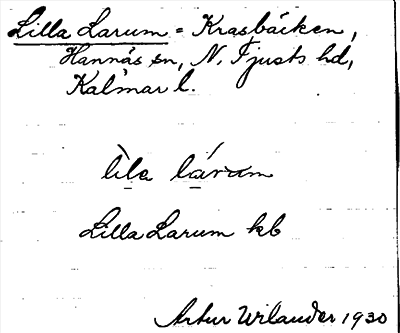 Lilla Larum = Krasbäcken,
Hannäs sn, N. Tjusts hd,
Kalmar l.
lìla lárum
Lilla Larum kb
Artur Wilander 1930